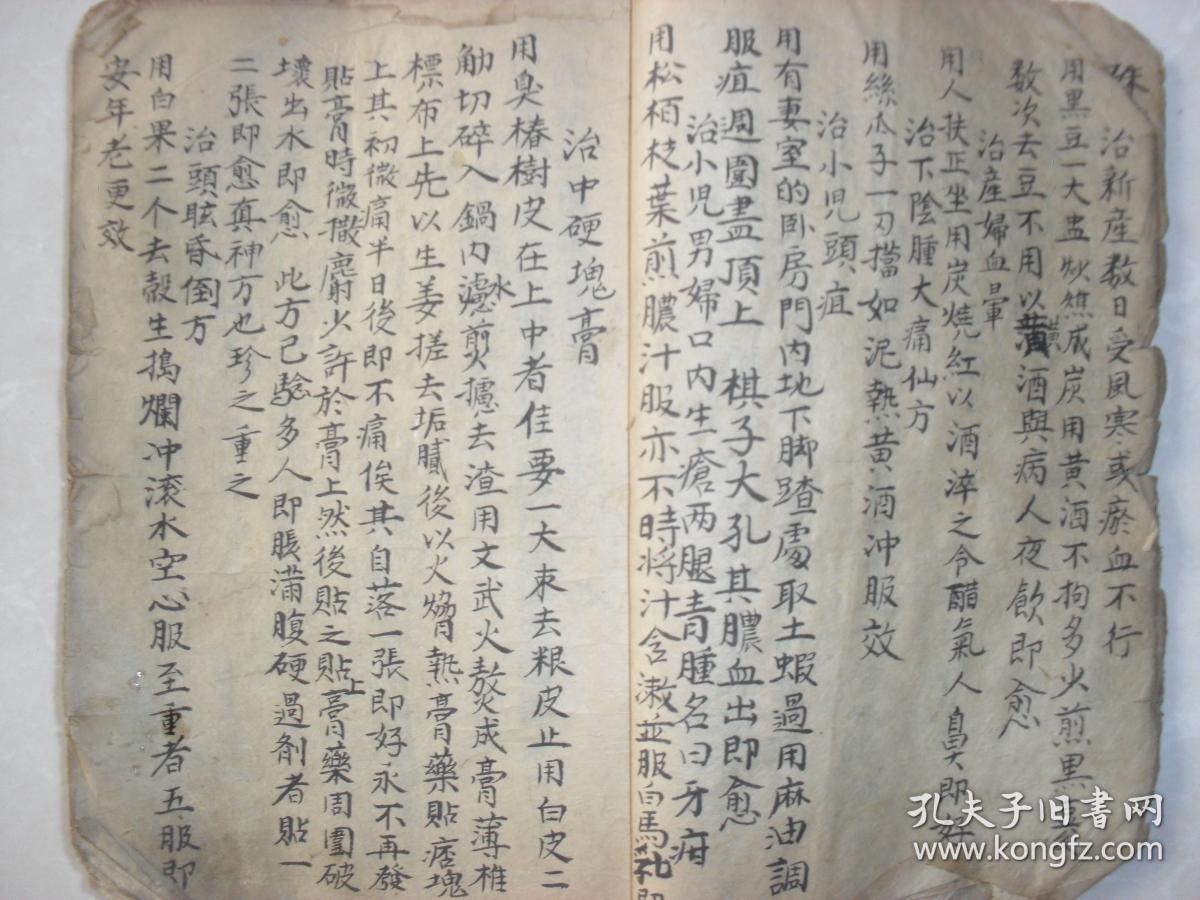 治新產数日受風寒或瘀血不行
用黑豆一大盅炒焦成炭用黄酒不拘多少煎黑
数次去豆不用以黄酒與病人夜飲即愈
治產婦血暈
用人扶正坐用炭燒紅以酒淬之令醋氣人鼻即好
治下陰腫大痛仙方
用絲瓜子一刃擂如泥熱黄酒冲服效
治小児頭疽
用有妻室的卧房門内地下脚蹅處取土蝦過用麻油調
服疽週圍盡頂上棋子大孔其膿血出即愈
治小児男婦口内生瘡两腿青腫名曰牙疳
用松栢枝葉煎膿汁服亦不時将汁含漱並服白馬
治中硬塊膏
用臭椿樹皮在上中者佳要一大束去粮皮止用白皮二
觔切碎入鍋内水濾煎攄去渣用文武火熬成膏薄椎
標布上先以生姜搓去垢膩後以火熁熱膏藥貼痞塊
上其初微痛半日後即不痛俟其自落一張即好永不再發
貼膏時微撒麝少許於膏上然後貼之貼上膏藥周圍破
壞出水即愈此方已驗多人即脹满腹硬過劑者貼一
二張即愈真神方也珍之重之
治頭眩昏倒方
用白果二个去殼生搗爛冲滚水空心服至重者五服即
安年老更效
孔夫子旧书网
www.kongfz.com